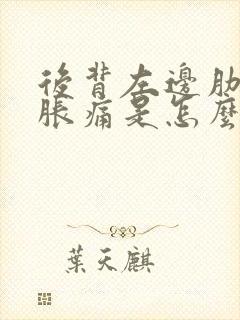 後背左邊肋
脹痛是怎麼
葉天麒